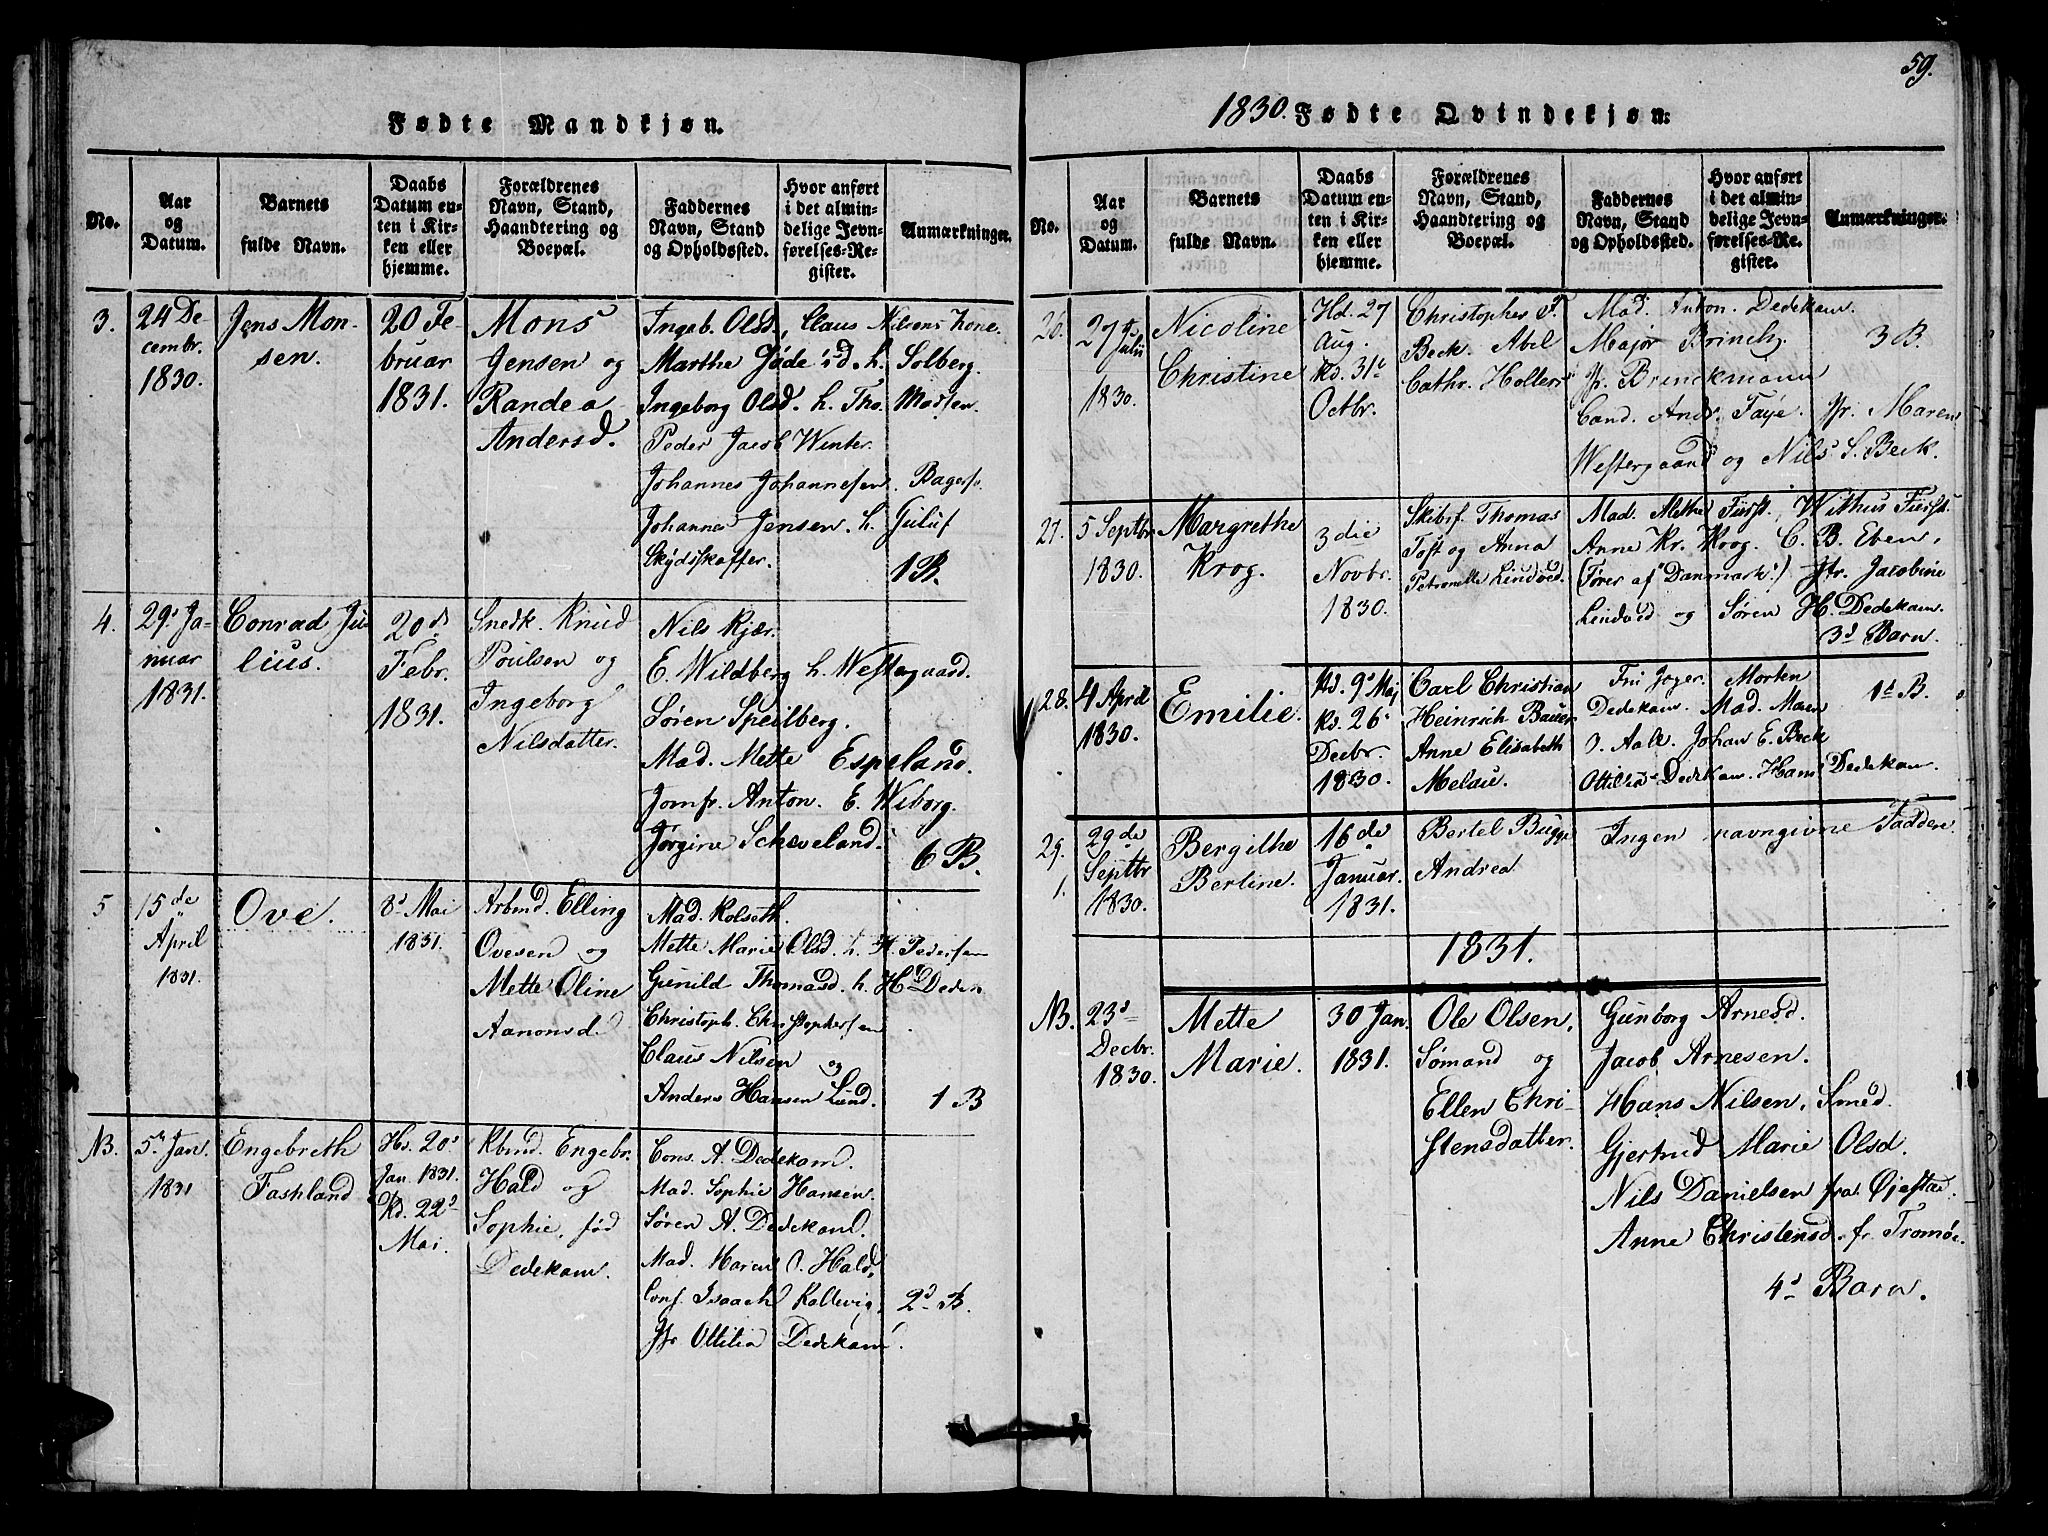 Fødte Mandkjøn.
No.
Aar og Datum.
Barnets fulde Navn.
Daabs Datum enten i Kirken eller hjemme.
Forældrenes Navn, Stand, Haandtering og Boepæl.
Faddernes Navn, Stand og Opholdssted.
Hvor anført i det almindelige Jevnførelses-Register.
Anmærkninger.
3.
24 De
cembr.
1830.
Jens Mon-
sen.
20 Fe-
bruar
1831.
Mons
Jensen og
Randea
Andersd.
Ingeb. Olsd., Claus Nilsens Kone.
Marthe h. Solberg.
Ingeborg Olsd. h. Tho. Madsen.
Peder Jacob Winter.
Johannes Johannesen.
Johannes Jensen. h. Guluf
Skydsskaffer.
1 B.
4.
29. Ja-
nuar
1831.
Conrad Ju-
lius.
20de
Febr.
1831.
Snedk. Knud
Poulsen og
Ingeborg
Nilsdatter.
Nils Kjær.
E. Wildberg h. Westergaard.
Søren Speilberg.
Mad. Mette Espeland.
Jomfr. Anton. E. Wiborg.
Jørgine Scheveland.
6 B.
5
15de
April
1831.
Ove.
8d Mai
1831.
Arbmd. Elling
Ovesen og
Mette Oline
Aanonsd.
Mad. Kolseth.
Mette Marie Olsd. h. H. Pedersen
Gunild Thomasd. h. H. Deden
Christoph. Christophersen
Claus Nilsen og
Anders Hansen Lund.
1 B
NB.
5 Jan.
1831
Engebreth
Fashland
Hd. 20d
Jan. 1831.
Kd. 22d
Mai.
Kbmd. Engebr.
Hald og
Sophie, fød
Dedekam.
Cons. A. Dedekam.
Mad. Sophie Hansen.
Søren A. Dedekam.
Mad. Maren O. Hald.
Conf. Isaach Kallevig.
Jfr Ottilia Dedekam.
2d B.
59.
1830. Fødte Qvindekjøn.
No.
Aar og Datum.
Barnets fulde Navn.
Daabs Datum enten i Kirken eller hjemme.
Forældrenes Navn, Stand, Haandtering og Boepæl.
Faddernes Navn, Stand og Opholdssted.
Hvor anført i det almindelige Jevnførelses-Register.
Anmærkninger.
26.
27 Julii
1830.
Nicoline
Christine
Hd. 27
Aug.
Kd. 31
Octbr.
Christopher F.
Beck. Abel
Cathr. Hollers
Mad. Anton. Dedekam.
Major Brinch.
Jfr. Brinckmann
Cand. Andr. Faye. Jfr. Maren
Westergaard og Nils S. Beck.
3 B.
27.
5 Septbr
1830.
Margrethe
Krog.
3die
Novbr.
1830.
Skibsf. Thomas
Toft og Anna
Petronelle Lindved.
Mad. Methe Fürst. Withus Fürst.
Anne Kr. Krog. C. B. Eben,
(Fører af "Danmark".) Jfr. Jacobine
Lindved og Søren H. Dedekam.
3d Barn.
28.
4 April
1830.
Emilie.
Hd. 9d Maj
Kd. 26
Decbr.
1830.
Carl Christian
Heinrich Bauer
Anne Elisabeth
Melau.
Fru Jager. Morten
Dedekam. Mad. Maren
O. Aale. Johan E. Beck
Ottilia Dedekam. Hans Dedekam.
1d B.
29.
1.
29de
Septbr
1830.
Bergithe
Bertine.
16de
Januar.
1831.
Bertel Bugge
Andrea
Ingen navngivne Faddere
1831.
NB.
23d
Decbr.
1830.
Mette
Marie.
30 Jan.
1831.
Ole Olsen,
Sømand og
Ellen Chri-
stensdatter.
Gunborg Arnesd.
Jacob Arnesen.
Hans Nilsen, Smed.
Gjertrud Marie Olsd.
Nils Danielsen fra Øjestad.
Anne Christensd. fr. Tromøe.
4d Barn.